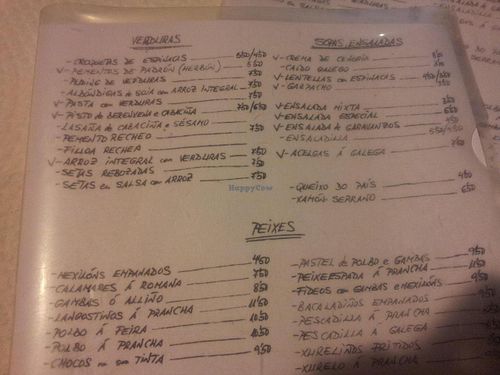 VERDURAS
- CROQUETAS DE ESPINACAS 550/450
V- PEMENTOS DE PADRÓN (HERBÓN) 550
- PUDING DE VERDURAS 750
- ALBÓNDIGAS de SOJA con ARROZ INTEGRAL 750
V- PASTA con VERDURAS 750
V- PISTO de BERENXENA e CABACIÑA 750/650
- LASAÑA de CABACIÑA e SÉSAMO
- PEMENTO RECHEO 750
- FILLOA RECHEA
V- ARROZ INTEGRAL con VERDURAS 750
- SETAS REBOZADAS 750
- SETAS en SALSA con ARROZ 750
SOPAS, ENSALADAS
V- CREMA DE CENORIA
- CALDO GALEGO
V- LENTELLAS con ESPINACAS
V- GAZPACHO
V- ENSALADA MIXTA
V- ENSALADA ESPECIAL
V- ENSALADA de GARAVANZOS
- ENSALADILLA
V- ACELGAS Á GALEGA
- QUEIXO DO PAÍS 450
- XAMÓN SERRANO 650
HappyCow
PEIXES
- MEXILÓNS EMPANADOS 450
- CALAMARES Á ROMANA 750
- GAMBAS Ó ALLIÑO 850
- LANGOSTINOS Á PRANCHA 1150
- POLBO Á FEIRA 1050
- POLBO Á PRANCHA 1050
- CHOCOS na súa TINTA 950
- PASTEL de POLBO e GAMBAS 950
- PEIXE ESPADA Á PRANCHA 1150
- FIDEOS con GAMBAS e MEXILÓNS 950
- BACALADIÑOS EMPANADOS
- PESCADILLA Á PRANCHA
- PESCADILLA Á GALEGA
- XURELIÑOS FRITIDOS
- XURELO Á PRANCHA